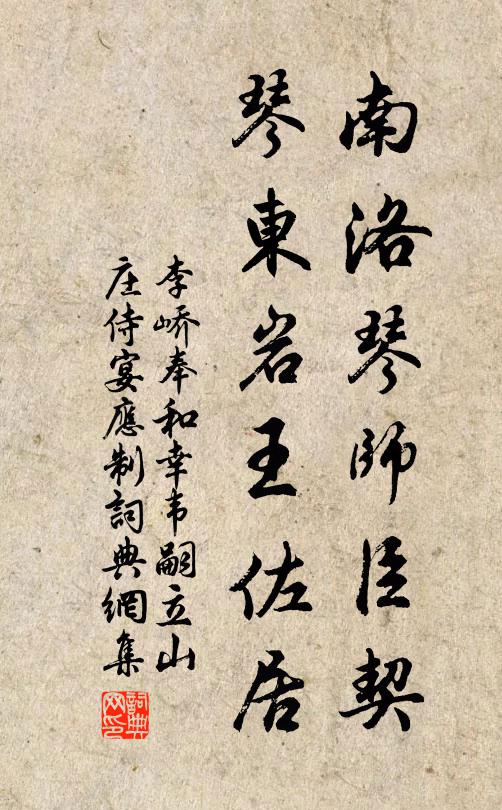 南洛琴師臣契
琴東岩王佐居
李嶠奉和幸韦嗣立山
庄侍宴應制詞典網集
詞典
网印